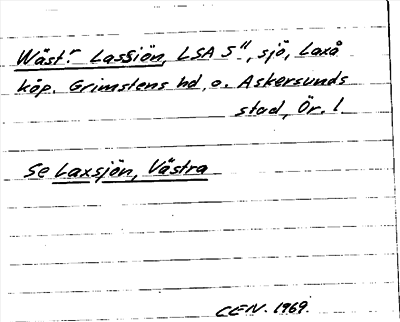 Wäst:r Lassiön, LSA 5", sjö, Laxå
köp. Grimstens hd, o. Askersunds
stad, Ör. l
Se Laxsjön, Västra
CEN. 1969.